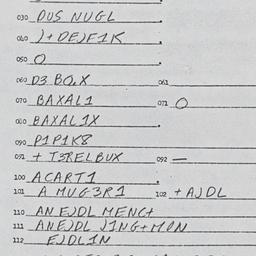 030 DUS NUGL
040 J+DEJF1K
050 O
060 D3 BO.X 061
070 BAXAL1 071 O
080 BAXAL1X
090 P1P1K8
091 + T3RELBUX 092 —
100 ACART1
101 A MUG3R1 102 +AJDL
110 AN EJDL MENC+
111 ANEJDL J1NG+MON
112 EJDL1N